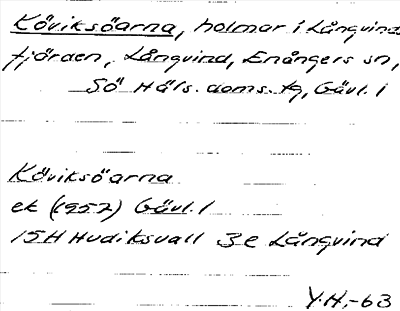 Köviksöarna, holmar i Långvind
fjärden, Långvind, Enångers sn,
Sö Häls. doms. tg, Gävl. l
Köviksöarna
ek (1957) Gävl. l
15H Hudiksvall 3e Långvind
Y.H.-63